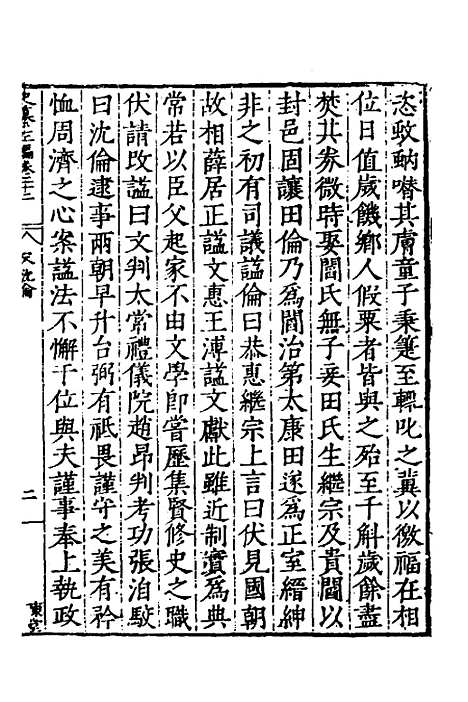 恣蚊蚋噆其膚童子秉箑至輒叱之冀以徼福在相
位日值歲饑鄉人假粟者皆與之殆至千斛歲餘盡
焚其券微時娶閻氏無子妾田氏生繼宗及貴閻以
封邑固讓田倫乃爲閻治第太康田遂爲正室縉紳
非之初有司議謚倫曰恭惠繼宗上言曰伏見國朝
故相薛居正謚文惠王溥謚文獻此雖近制實爲典
常若以臣父起家不由文學卽嘗歷集賢修史之職
伏請改謚曰文判太常禮儀院趙昂判考功張洎駮
曰沈倫逮事兩朝早升台弼有祗畏謹守之美有矜
恤周濟之心案謚法不懈于位與夫謹事奉上執政
八 沈倫
二